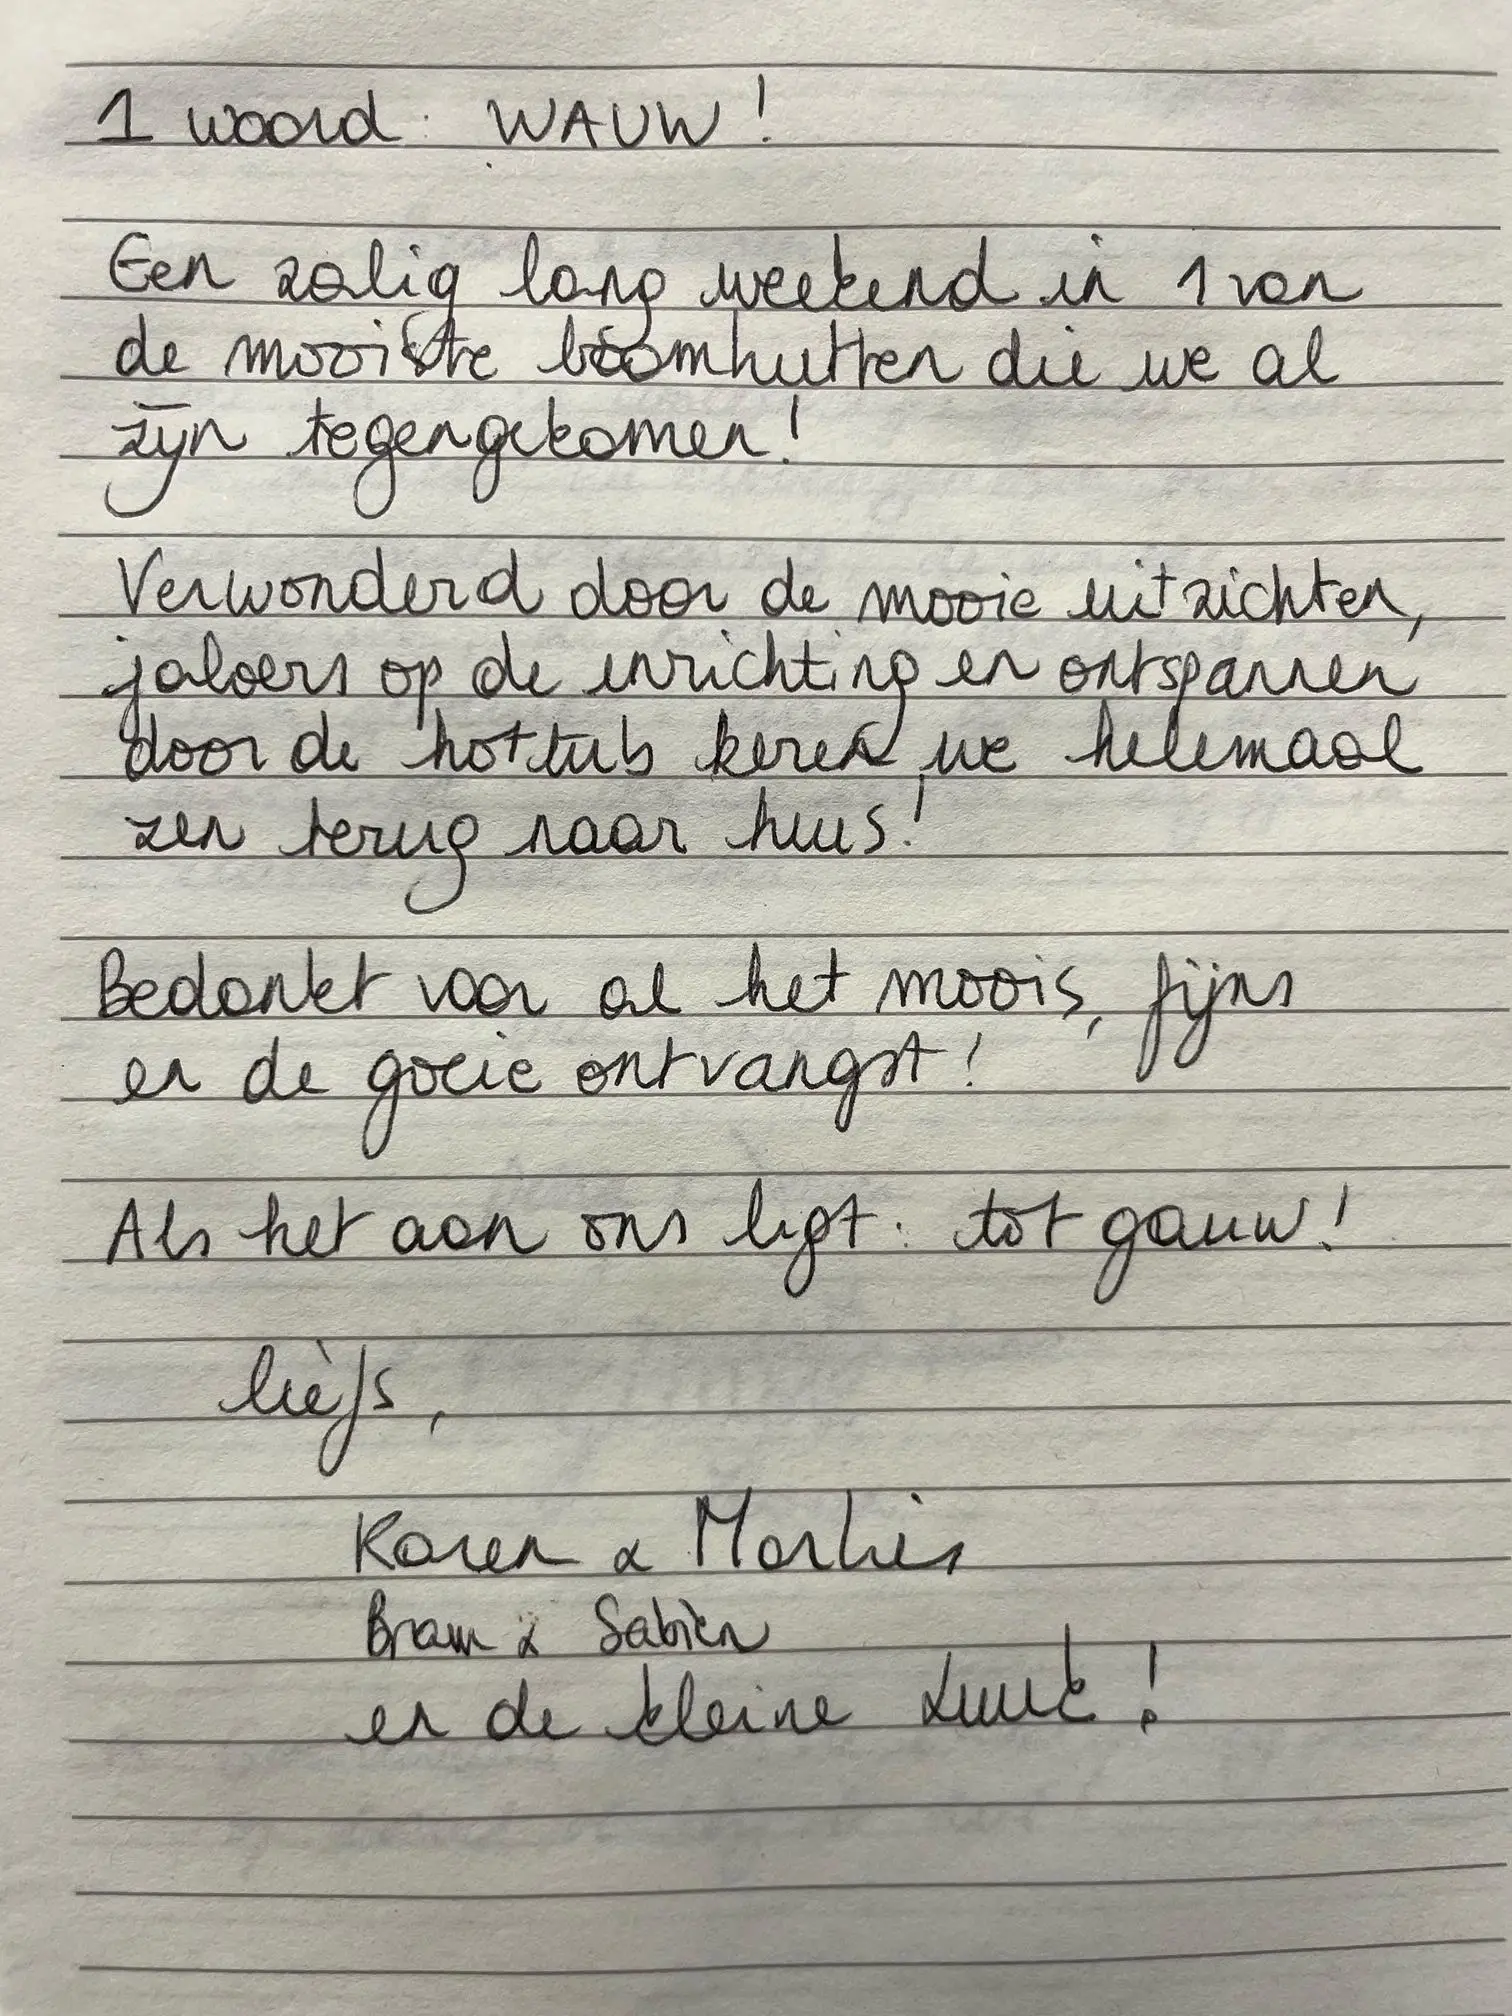 1 woord: WAUW!
Een zalig lang weekend in 1 van
de mooiste boomhutten die we al
zijn tegengekomen!
Verwonderd door de mooie uitzichten,
jaloers op de inrichting en ontspannen
door de hottub keren we helemaal
zen terug naar huis!
Bedankt voor al het moois, fijns
en de goeie ontvangst!
Als het aan ons ligt: tot gauw!
liefs,
Karen &
Bram & Sabien
en de kleine Luuk!